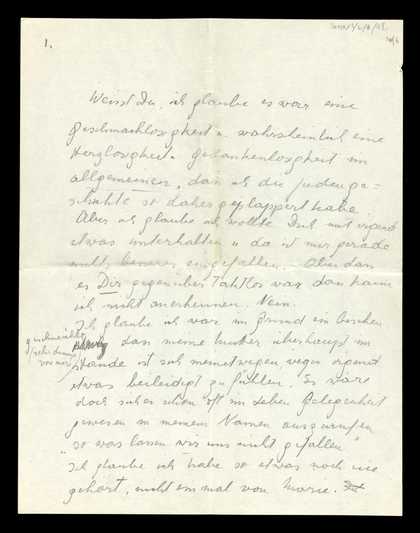 1.
Weisst Du, ich glaube es war eine
Geschmachlosigheit u. wahrsheinlich eine
Herzlosigheit u. Gedankenlosigheit im
allgemeinen, dass ich die Judenge=
schichte so dahergeplappert habe.
Aber ich glaube ich wollte Dich mit irgend
etwas unterhalten u da ist mir gerade
nichts besseres eingefallen. Aber dass
es Dir gegenüber Taktlos war dan kann
ich nicht anerkennen. Nein.
Ich glaube ich war im Grund ein bischen
geschmeichelt
dass meine Mutter überhaupt im
stande ist sich meinetwegen wegen irgend
etwas beleidigt zu fühlen. Es wäre
doch sicher schon oft im Leben Gelegenheit
gewesen in meinem Namen auszurufen
"so was lassen wir uns nicht gefallen"
Ich glaube ich habe so etwas noch nie
gehört, nicht einmal von Marie.